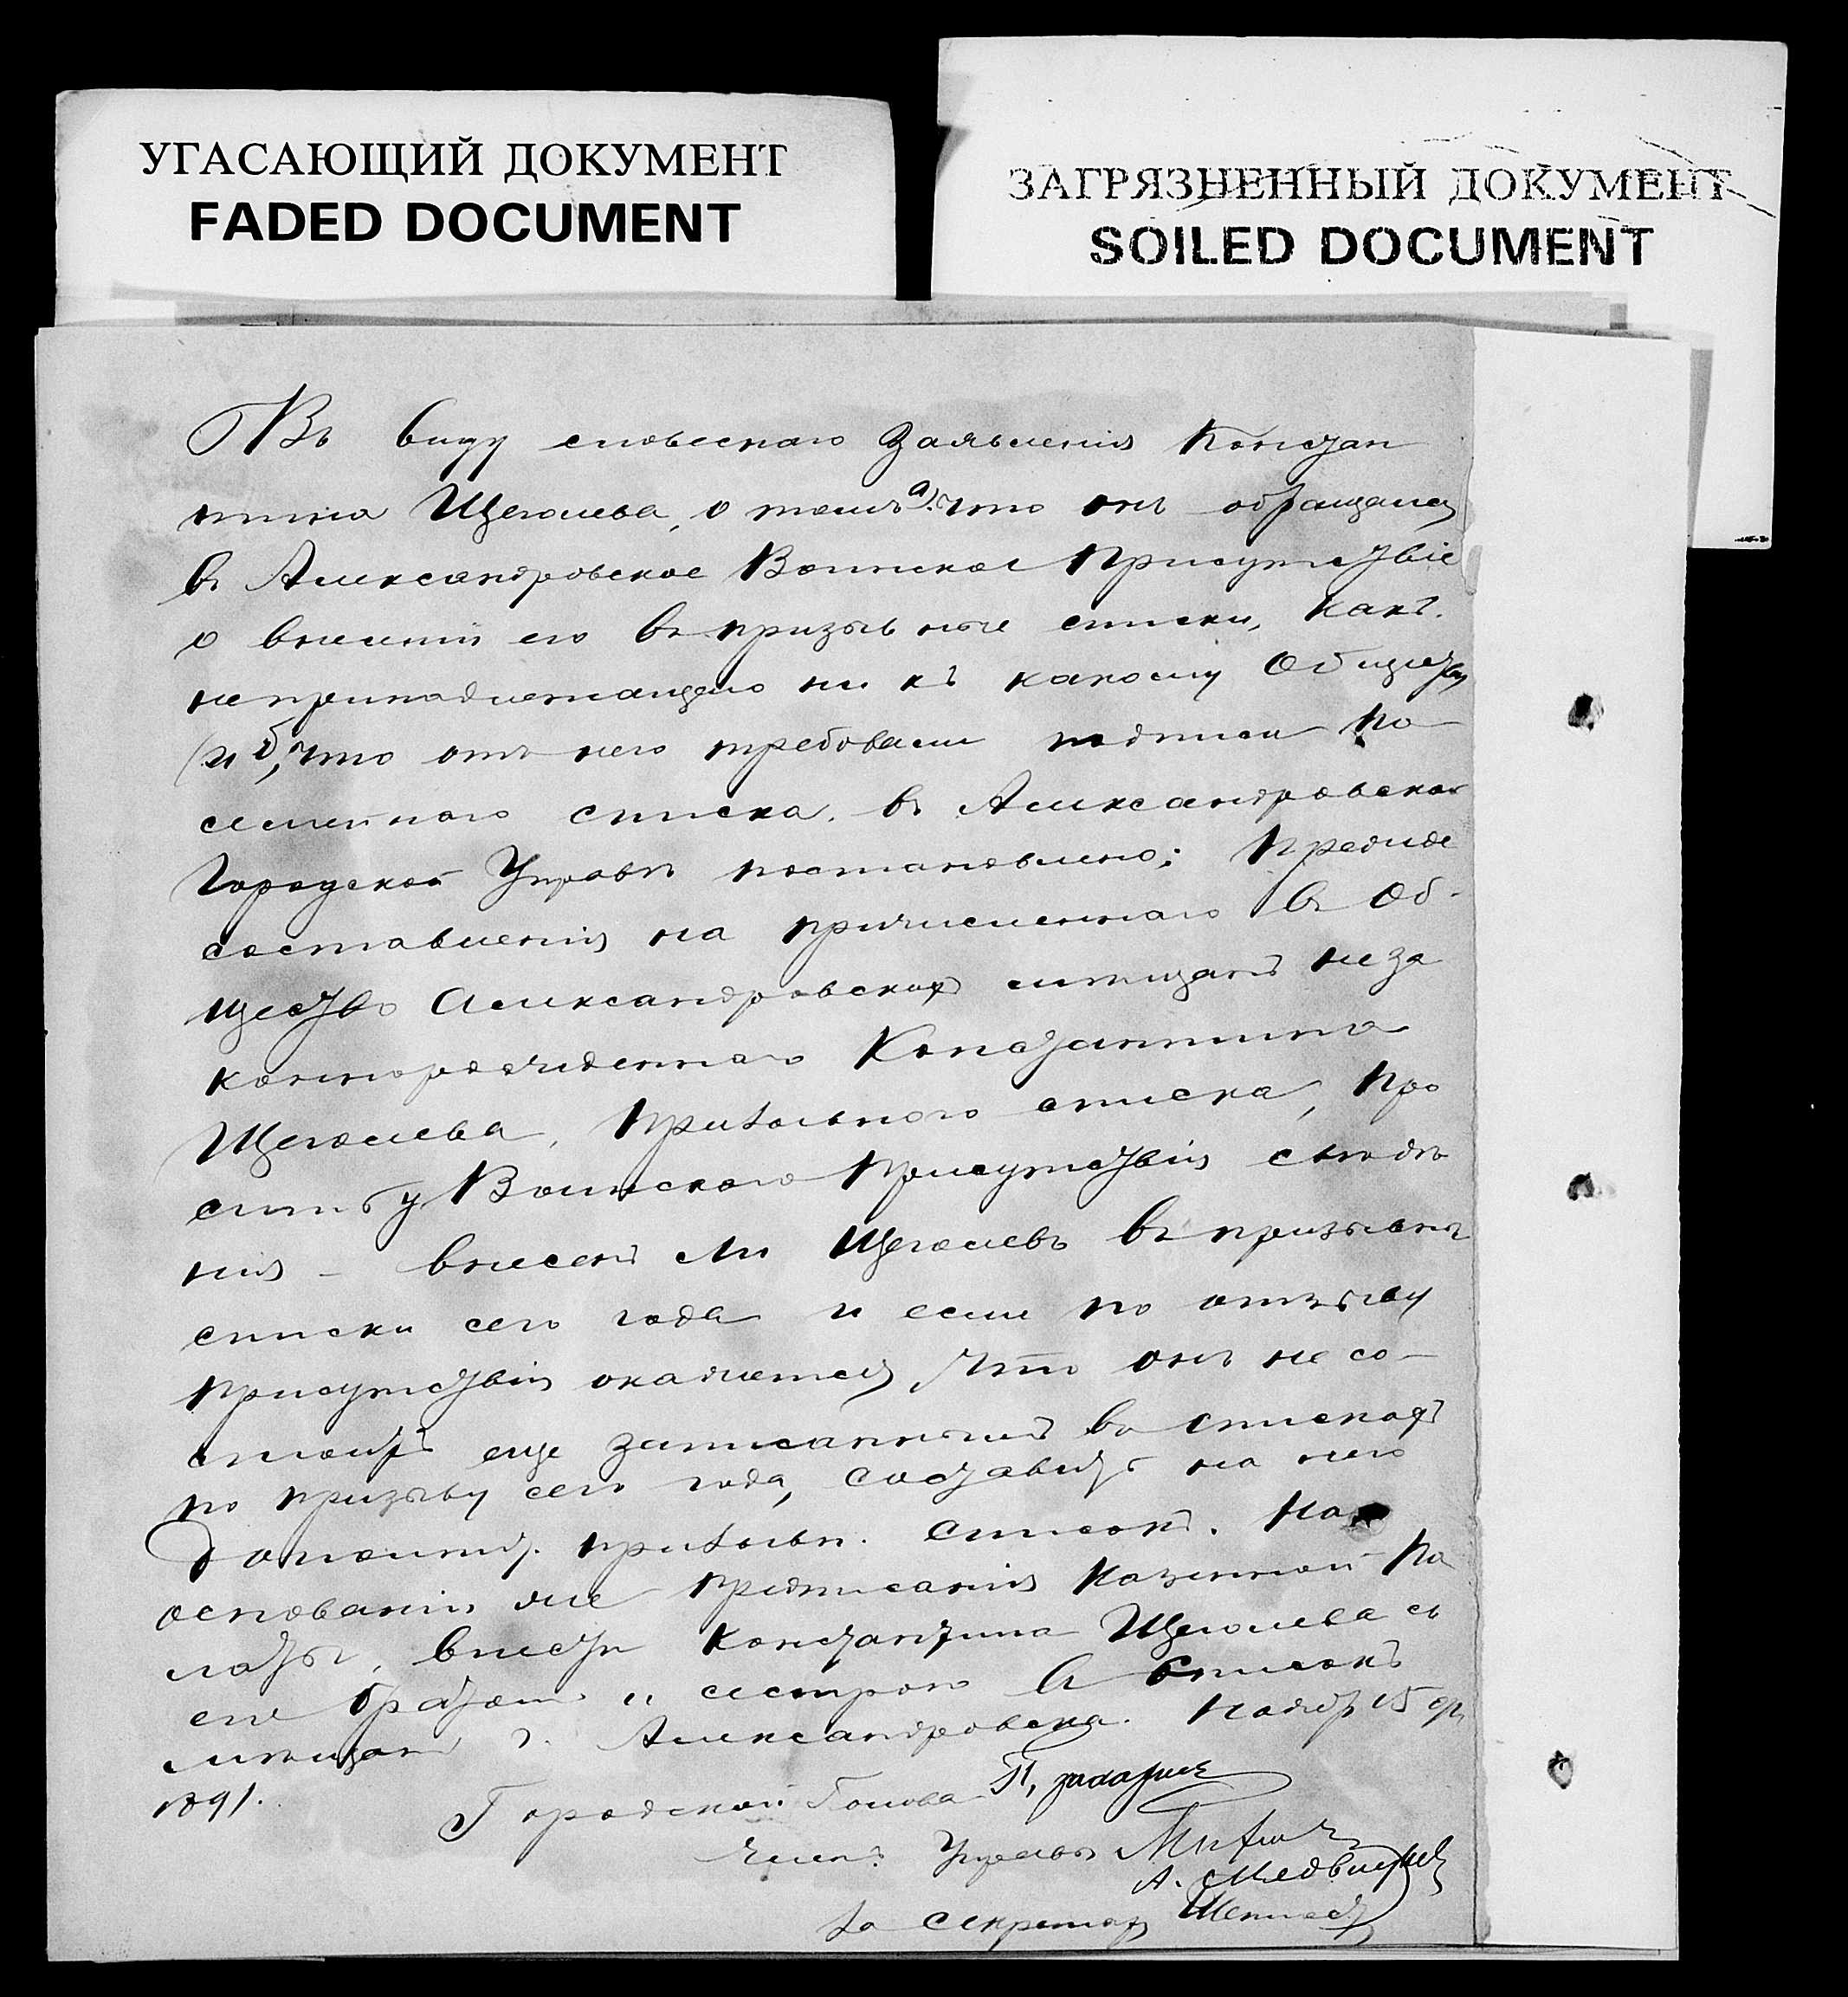 УГАСАЮЩИЙ ДОКУМЕНТ
FADED DOCUMENT
ЗАГРЯЗНЕННЫЙ ДОКУМЕНТ
SOILED DOCUMENT
Въ виду словеснаго заявленія Констан
тина Щеголева, о томъ а) что онъ обращался
въ Александровское Воинское Присутствіе
о внесеніи его въ призывные списки, какъ
непринадлежащаго ни къ какому Обществу
и б, что отъ него требовали подписи по
семейнаго списка. въ Александровской
Городской Управѣ постановлено: Прежде
составленія на причисленнаго въ Об-
щество Александровскихъ мѣщанъ неза
коннорожденнаго Константина
Щеголева, призывного списка, про
сить у Воинскаго Присутствія свѣдѣ
нія – внесенъ ли Щеголевъ въ призывные
списки сего года и если по отзыву
Присутствія окажется, что онъ не со-
стоитъ еще записаннымъ въ спискахъ
по призыву сего года, составить на него
дополнит. призывн. списокъ. На
основаніи же предписанія Казенной Па
латы, внести Константина Щеголева съ
его братом и сестрою въ Списокъ
мѣщанъ г. Александровска. Ноябр 15 дн
1891.
Городской Голова П,
Член: Управы
А.
За Секретаря